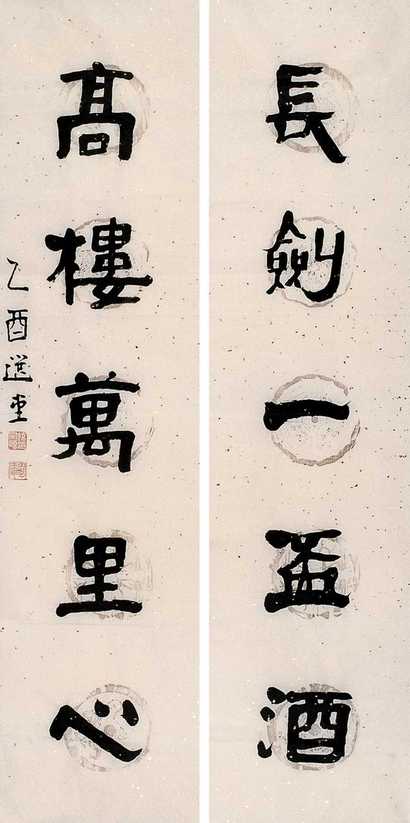 長劍一盃酒
高樓萬里心
乙酉選堂